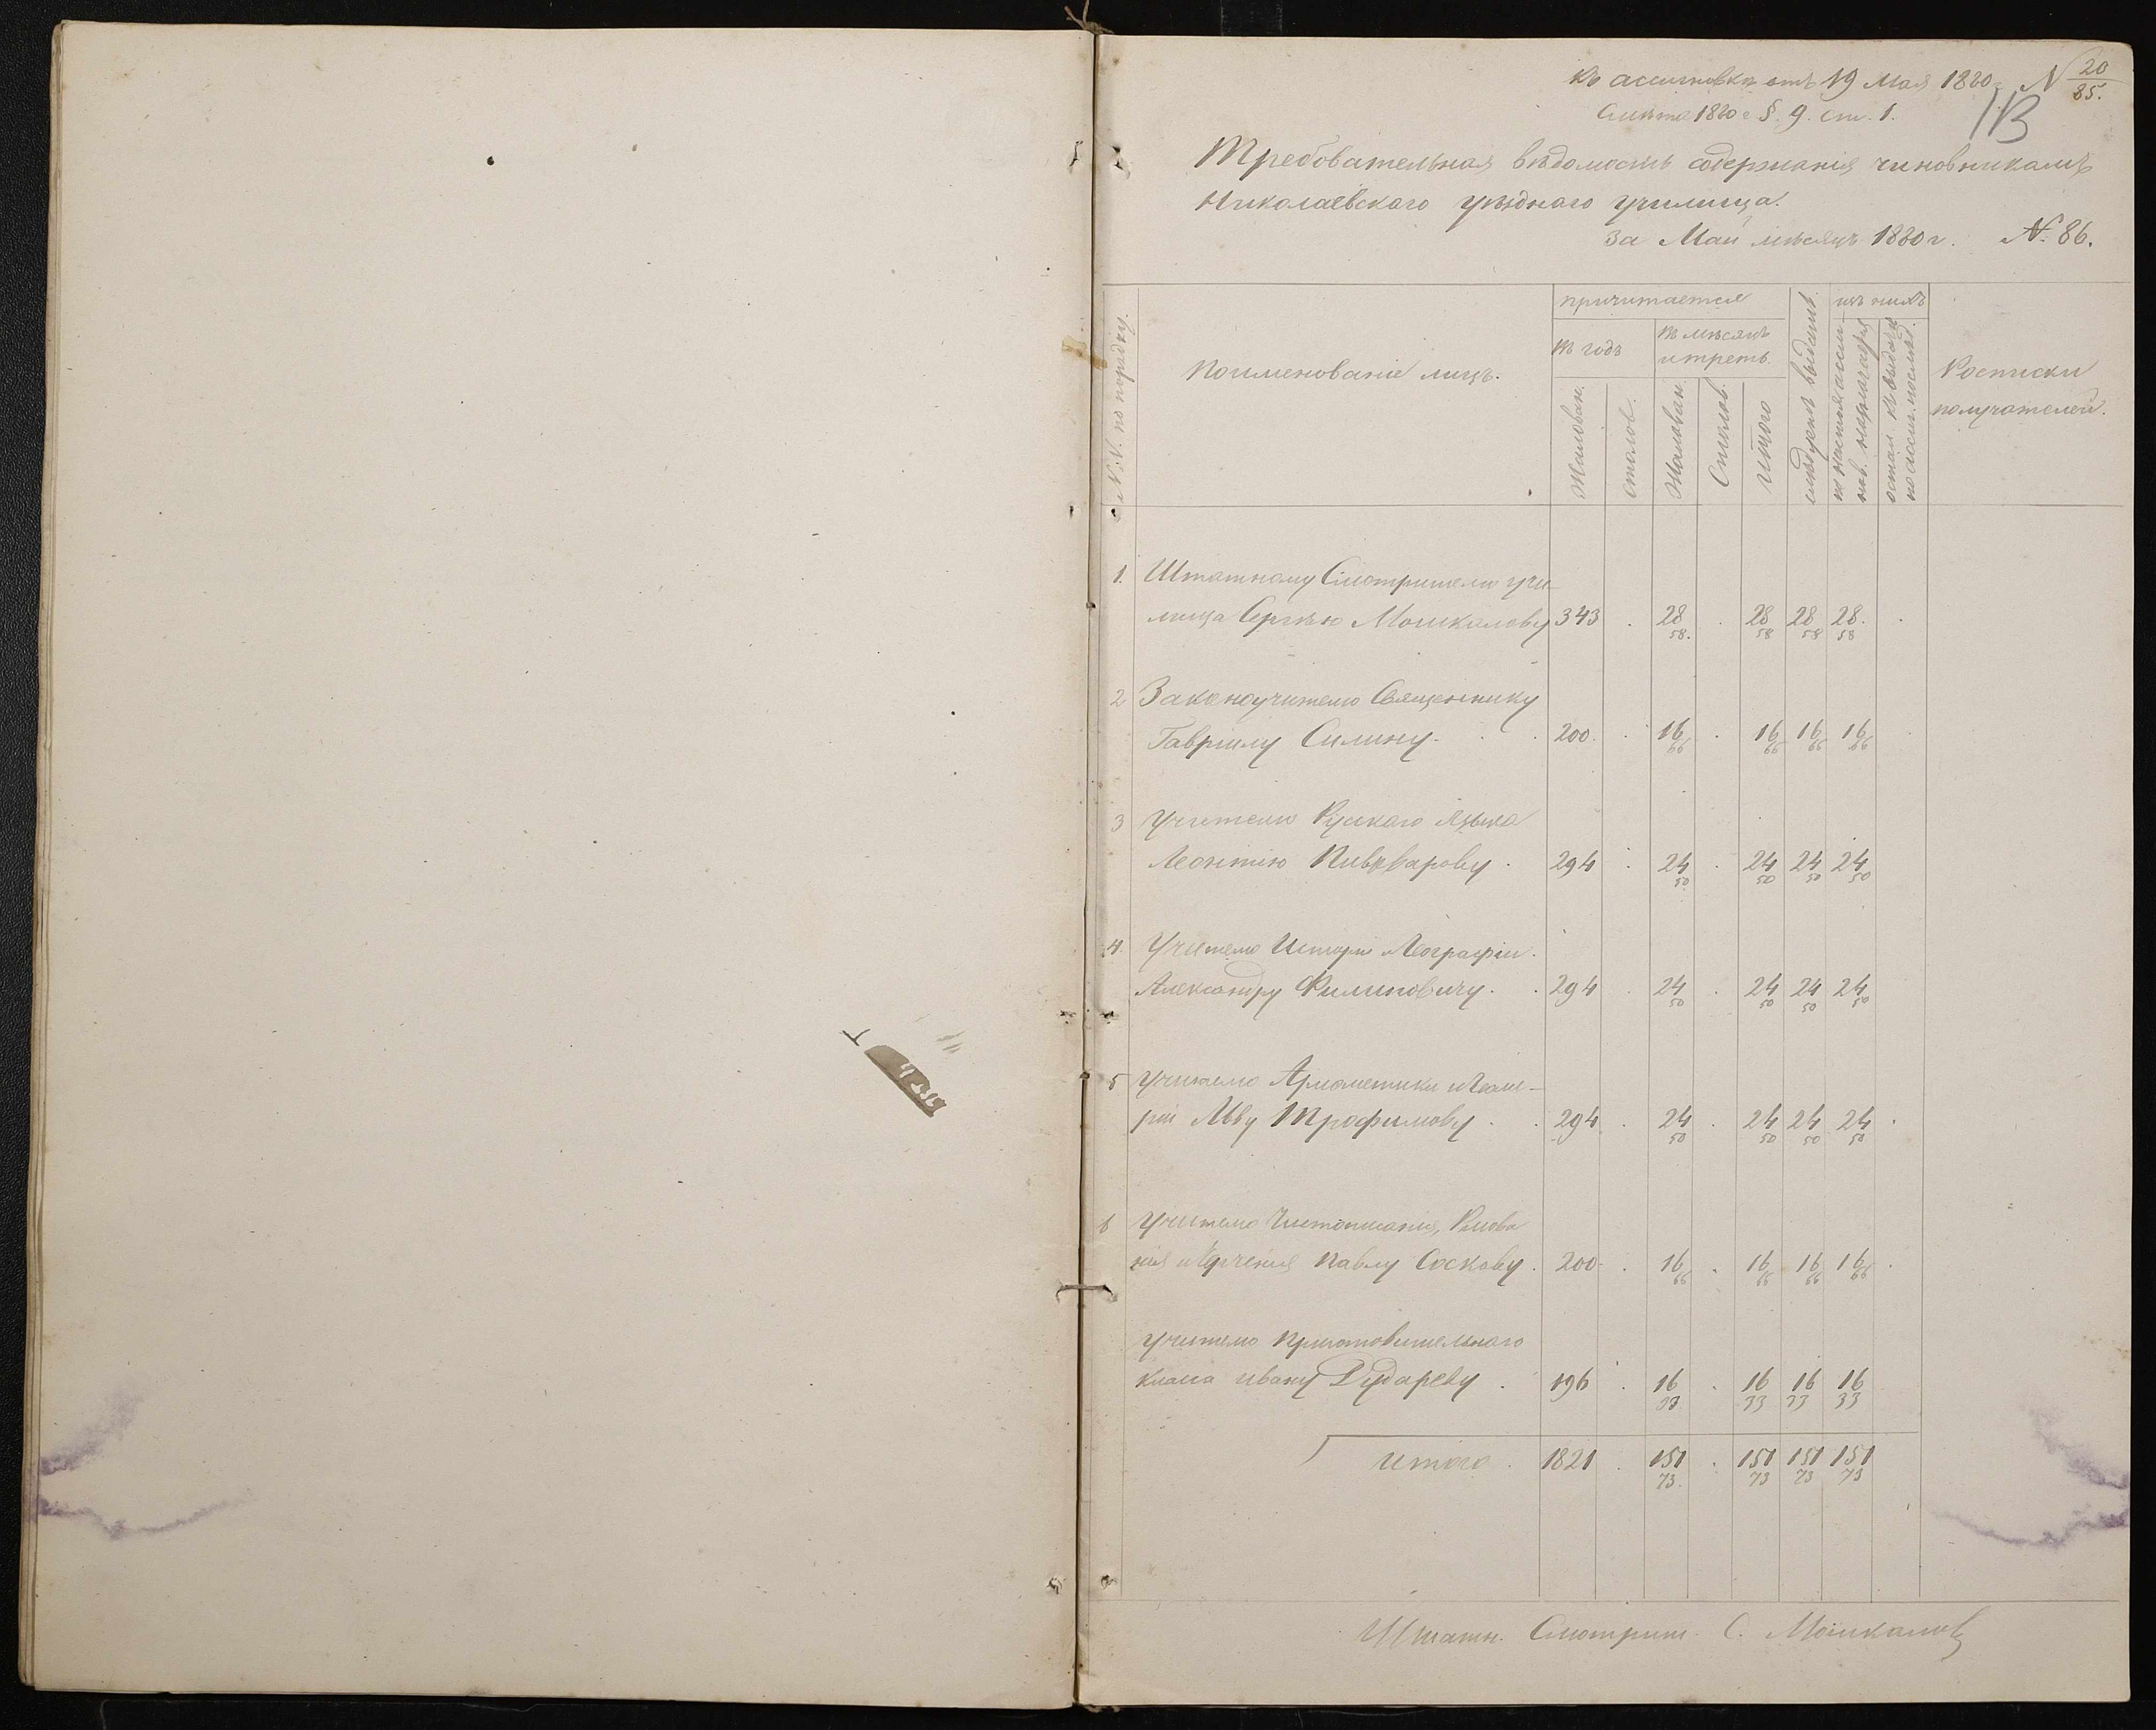 Къ ассигновкѣ отъ 19 Мая 1880 г. № 20/85.
Смѣта 1880 г. §. 9. ст. 1.
13
Требовательная вѣдомость содержанія чиновникамъ
Николаевскаго уѣзднаго училища.
За Май мѣсяцъ 1880 г. №. 86.
№№. по порядку.
Поименованіе лицъ.
причитается
въ годъ
въ мѣсяцъ
и треть.
Жалован.
столов.
Жалован.
Столов.
Итого
слѣдуетъ выдать
изъ нихъ
по настоя. ассиг-
остал. къ выдачѣ
по ассиг. послѣд.
Росписки
получателей.
1. Штатному Смотрителю учи-
лища Сергѣю Мошкалову 343 . 28 58. . 28 58 28 58 28. 58 .
2 Законоучителю Священнику
Гавріилу Силину. . . 200. . 16 66 . 16 66 16 66 16 66 .
3 Учителю Русскаго Языка
Леонтію Пивоварову . 294 . 24 50 . 24 50 24 50 24 50
4. Учителю Исторіи Географіи.
Александру Филиповичу. . 294 . 24 50 . 24 50 24 50 24 50
5 Учителю Ариѳметики и Геоме-
ріи Льву Трофимову . . 294 . 24 50 . 24 50 24 50 24 50 .
6 Учителю Чистописанія, Рисова
нія и Черченія Павлу Соскову. 200. . 16 66 . 16 66 16 66 16 66 .
Учителю Приготовительнаго
класса Ивану Дудареву . 196 . 16 33 . 16 33 16 33 16 33
Итого . 1821 . 151 73. . 151 73 151 73 151 73
Штатн. Смотрит. С. Мошкаловъ